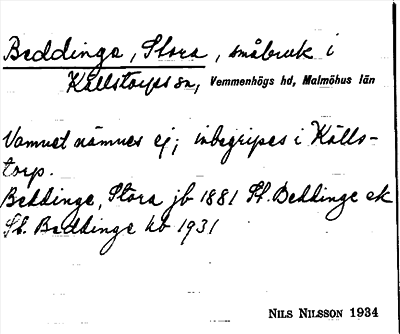 Beddinge, Stora, småbruk i
Källstorps sn, Vemmenhögs hd, Malmöhus län
Namnet nämnes ej; inbegripes i Källs-
torp.
Beddinge, Stora jb 1881 St. Beddinge ek
St. Beddinge kb 1931
NILS NILSSON 1934